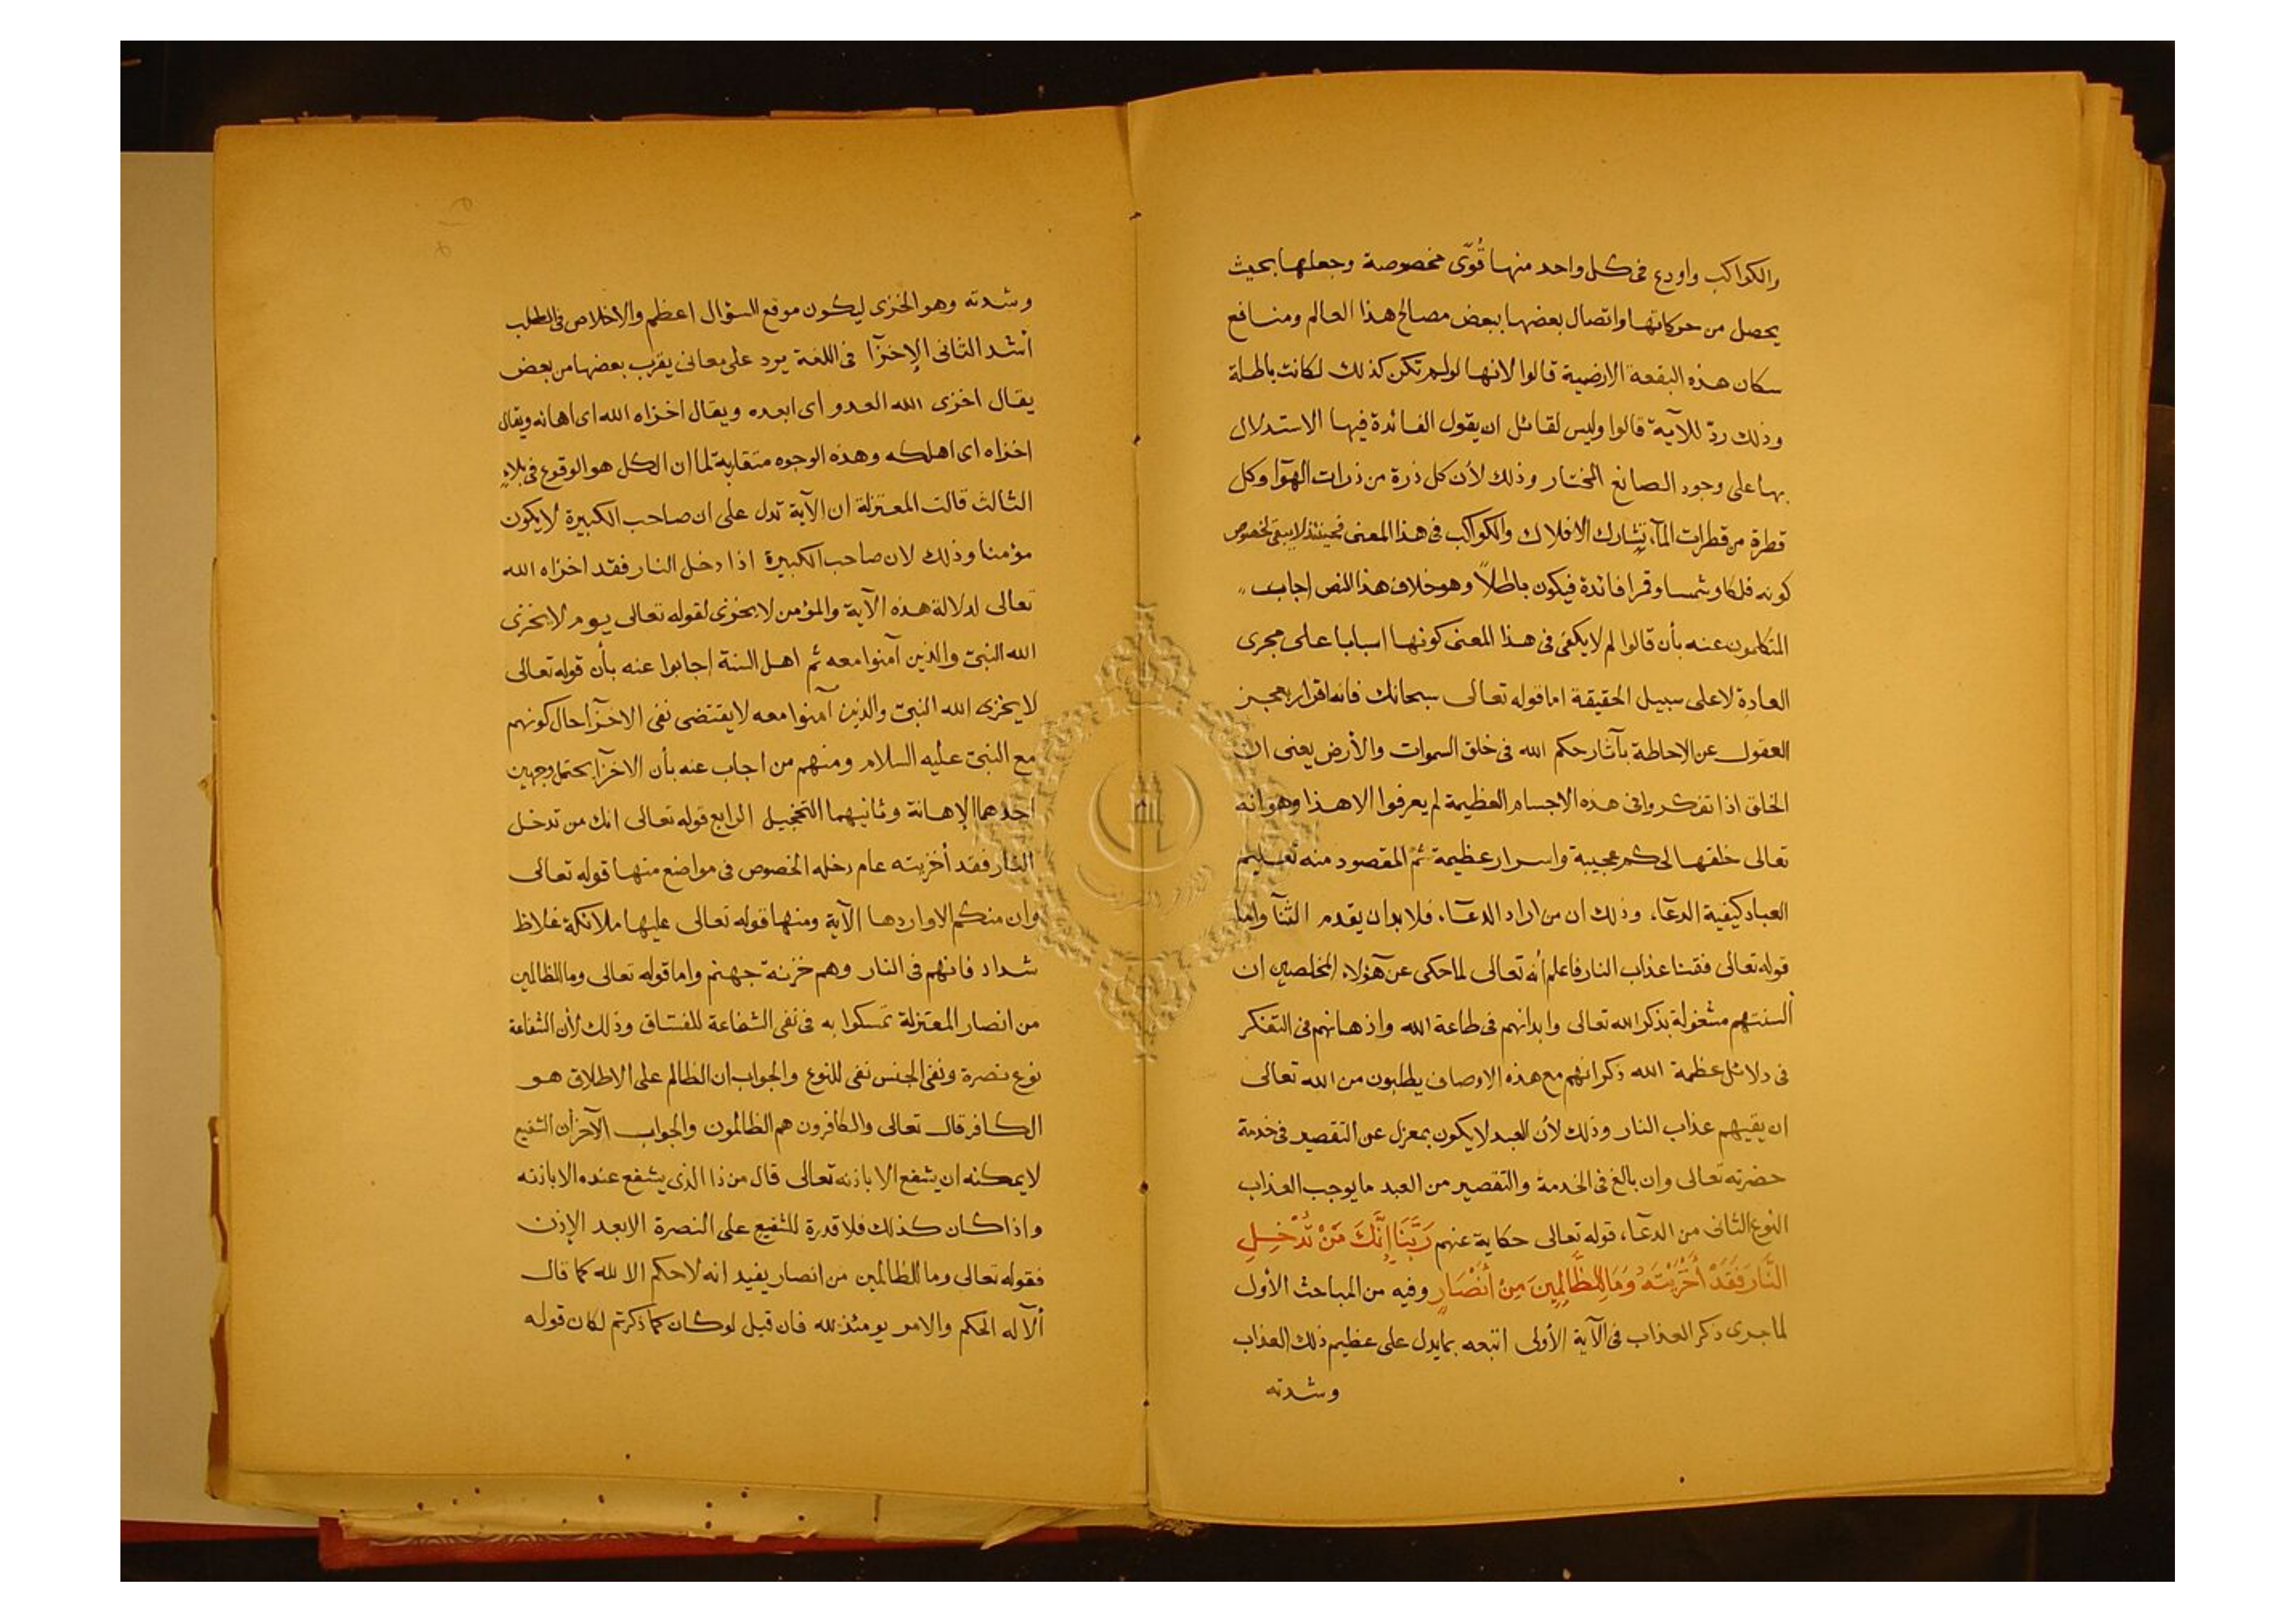 والكواكب واودع فى كل واحد منها قُوًى مخصوصة وجعلها بحيث
يحصل من حركاتها واتصال بعضها ببعض مصالح هذا العالم ومنافع
سكان هذه البقعة الارضية قالوا لانها لولم تكن كذلك لكانت باطلة
وذلك ردّ للآية قالوا وليس لقائل ان يقول الفائدة فيها الاستدلال
بها على وجود الصانع المختار وذلك لأن كل ذرة من ذرات الهوآ وكل
قطرة من قطرات المآء تشارك الافلاك والكواكب فى هذا المعنى فحينئذ لا يبقى لخصوص
كونه فلكا وشمسا وقمرا فائدة فيكون باطلاً وهو خلاف هذا النص اجاب
المتكلمون عنه بأن قالوا لم لا يكفى فى هذا المعنى كونها اسبابا على مجرى
العادة لا على سبيل الحقيقة اما قوله تعالى سبحانك فانه اقرار بعجز
العقول عن الاحاطة بآثار حكم الله فى خلق السموات والأرض يعنى ان
الخلق اذا تفكروا فى هذه الاجسام العظيمة لم يعرفوا الا هذا وهو انه
تعالى خلقها لحكم عجيبة واسرار عظيمة ثم المقصود منه تعليم
العباد كيفية الدعآء، وذلك ان من اراد الدعآء، فلا بد ان يقدم الثنآ واما
قوله تعالى فقنا عذاب النار فاعلم أنه تعالى لما حكى عن هؤلاء المخلصين ان
ألسنتهم مشغولة بذكر الله تعالى وابدانهم فى طاعة الله واذهانهم فى التفكر
فى دلائل عظمة الله ذكر انهم مع هذه الاوصاف يطلبون من الله تعالى
ان يقيهم عذاب النار وذلك لأن العبد لا يكون بمعزل عن التقصير فى خدمة
حضرته تعالى وان بالغ فى الخدمة والتقصير من العبد ما يوجب العذاب
النوع الثانى من الدعآء، قوله تعالى حكاية عنهم رَبَّنَا إِنَّكَ مَنْ تُدْخِلِ
النَّارَ فَقَدْ أَخْزَيْتَهُ وَمَا لِلظَّالِمِينَ مِنْ أَنْصَارٍ وفيه من المباحث الأول
لما جرى ذكر العذاب فى الآية الأولى اتبعه بما يدل على عظيم ذلك العذاب
وشدته
وشدته وهو الخزى ليكون موقع السؤال اعظم والاخلاص فى الطلب
أشد الثانى الإخزآ فى اللغة يرد على معانى يقرب بعضها من بعض
يقال اخزى الله العدو اى ابعده ويقال اخزاه الله اى اهانه ويقال
اخزاه اى اهلكه وهذه الوجوه متقاربة لما ان الكل هو الوقوع فى بلاء
الثالث قالت المعتزلة ان الآية تدل على ان صاحب الكبيرة لا يكون
مؤمنا وذلك لان صاحب الكبيرة اذا دخل النار فقد اخزاه الله
تعالى لدلالة هذه الآية والمؤمن لا يخزى لقوله تعالى يوم لا يخزى
الله النبىّ والذين آمنوا معه ثم اهل السنة اجابوا عنه بأن قوله تعالى
لا يخزى الله النبىّ والذين آمنوا معه لا يقتضى نفى الاخزآ حال كونهم
مع النبىّ عليه السلام ومنهم من اجاب عنه بأن الاخزآ يحتمل وجهين
احدهما الإهانة وثانيهما التخجيل الرابع قوله تعالى انك من تدخل
النار فقد أخزيته عام دخله الخصوص فى مواضع منها قوله تعالى
وان منكم الا واردها الآية ومنها قوله تعالى عليها ملائكة غلاظ
شداد فانهم فى النار وهم خزنة جهنم واما قوله تعالى وما للظالمين
من انصار المعتزلة تمسكوا به فى نفى الشفاعة للفساق وذلك لأن الشفاعة
نوع نصرة ونفى الجنس نفى للنوع والجواب ان الظالم على الاطلاق هو
الكافر قال تعالى والكافرون هم الظالمون والجواب الآخر أن الشفيع
لا يمكنه ان يشفع الا باذنه تعالى قال من ذا الذى يشفع عنده الا باذنه
واذا كان كذلك فلا قدرة للشفيع على النصرة الا بعد الإذن
فقوله تعالى وما للظالمين من انصار يفيد انه لا حكم الا لله كما قال
ألآ له الحكم والامر يومئذ لله فان قيل لو كان كما ذكرتم لكان قوله